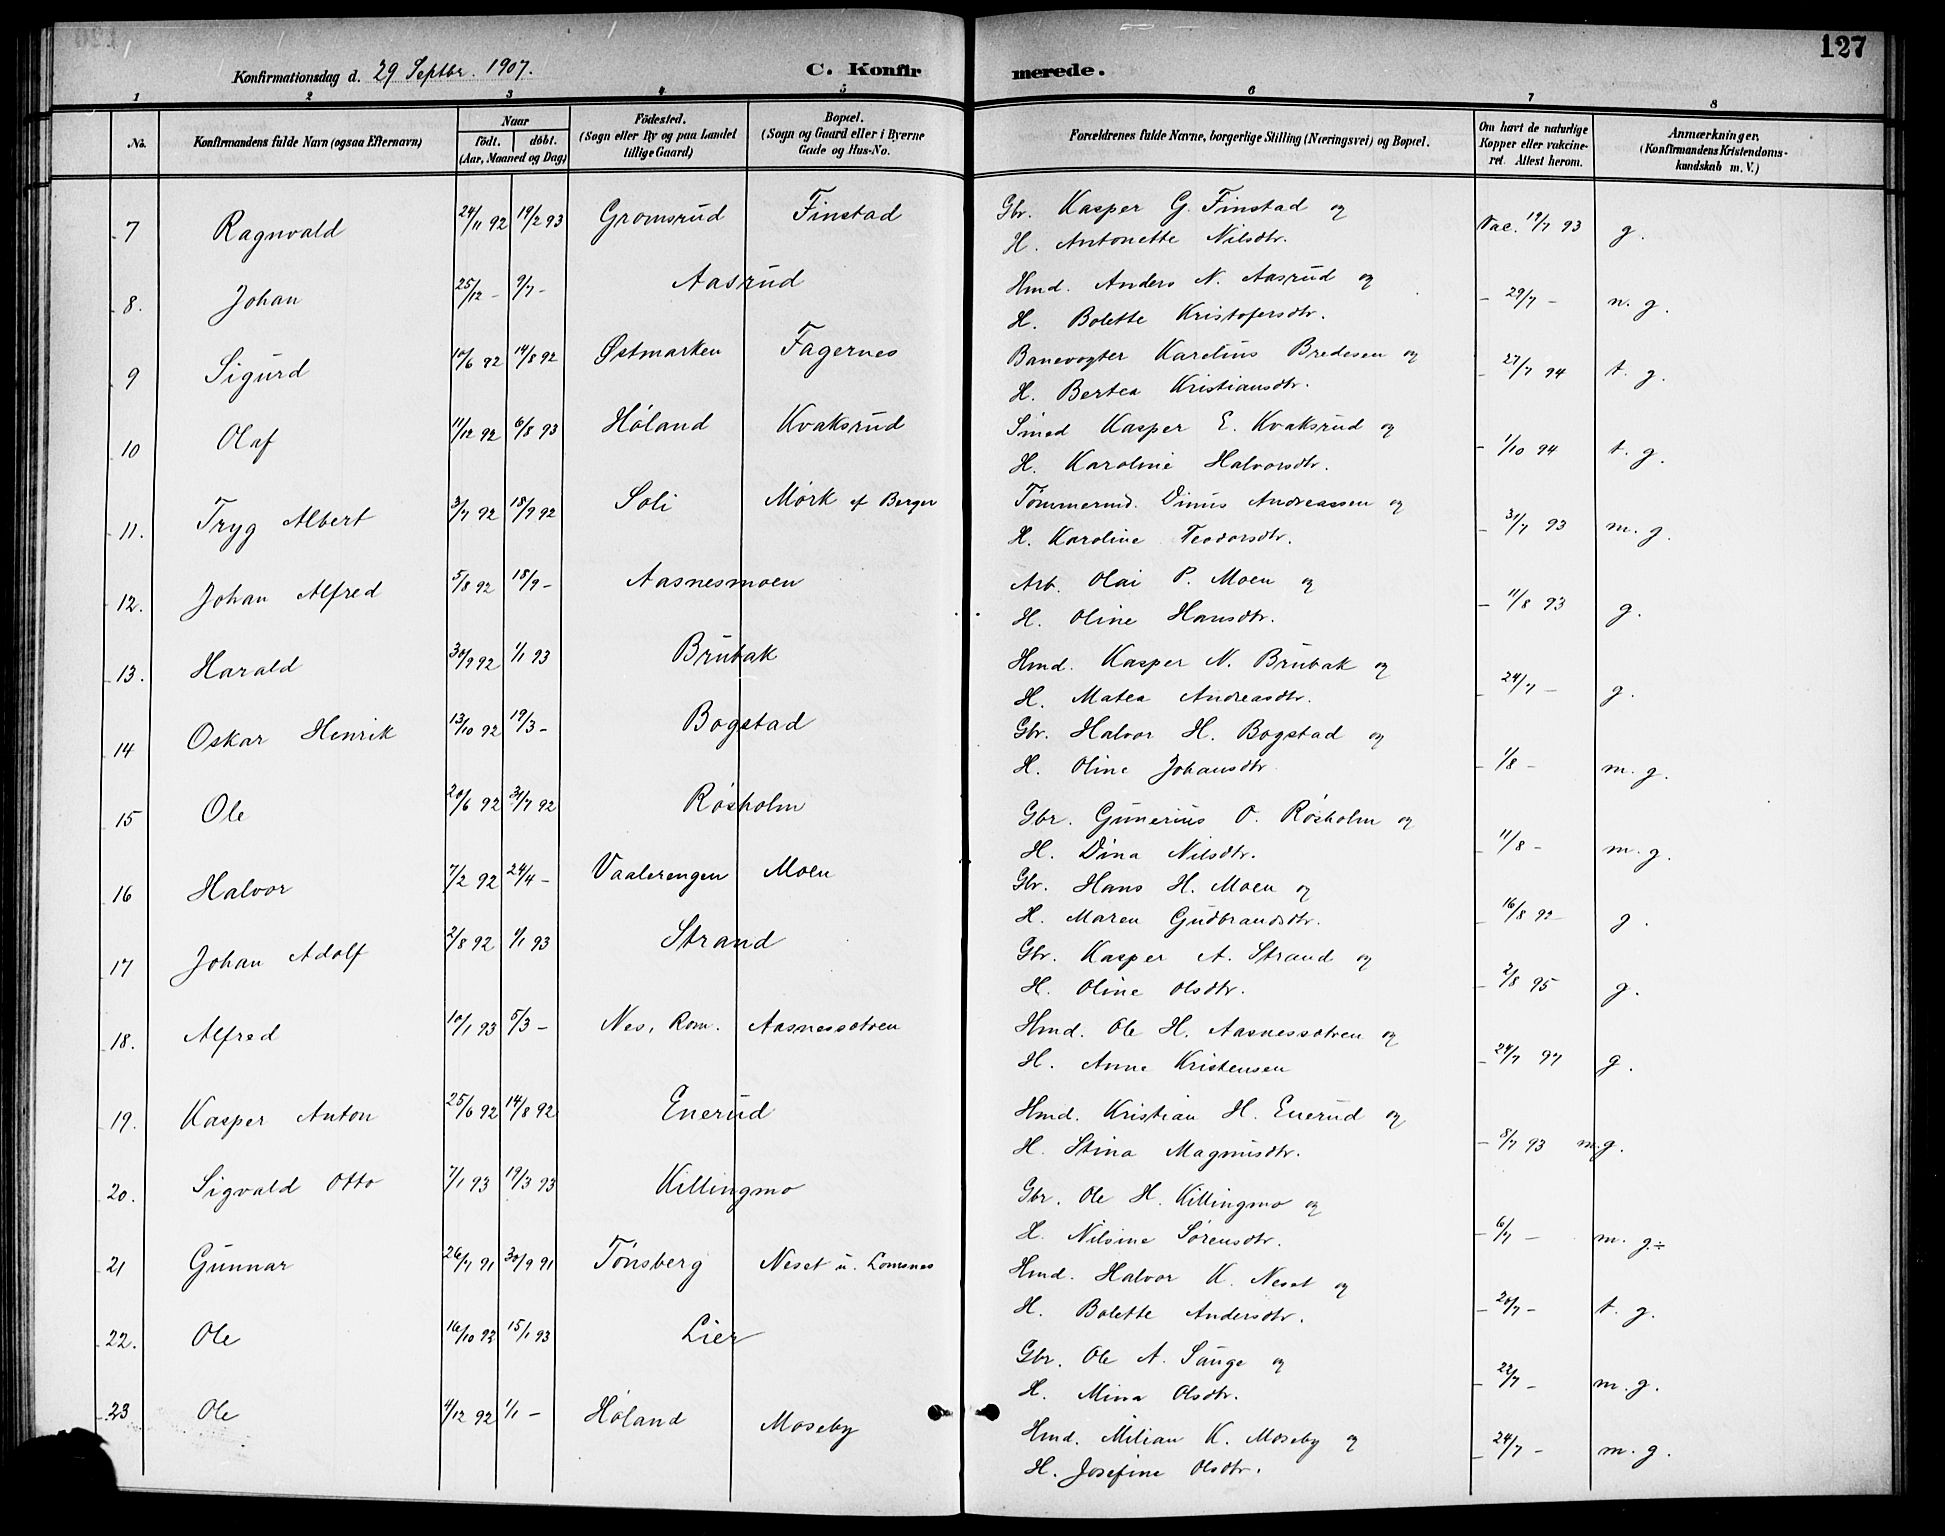 127
Konfirmationsdag d. 29 Septbr. 1907. C. Konfirmerede.
1 2 3 4 5 6 7 8
No. Konfirmandens fulde Navn (ogsaa Efternavn) Naar født. døbt. (Aar, Maaned og Dag) Fødested. (Sogn eller By og paa Landet tillige Gaard) Bopæl. (Sogn og Gaard eller i Byerne Gade og Hus-No. Forældrenes fulde Navne, borgerlige Stilling (Næringsvei) og Bopæl. Om havt de naturlige Kopper eller vaccineret. Attest herom. Anmærkninger. (Konfirmandens Kristendomskundskab m. V.)
7 Ragnvald 24/11 92 19/2 93 Gromsrud Finstad Gbr. Kasper G. Finstad og Vac. 19/7 93 g.
H. Antonette Nilsdtr.
8. Johan 25/12 - 9/7 - Aasrud Hmd. Anders N. Aasrud og - 29/7 - n. g.
H. Bolette Kristofersdtr.
9 Sigurd 10/6 92 14/8 92 Østmarken Fagernes Banevogter Karelius Bredesen og - 27/7 94 t. g.
H. Bertea Kristiansdtr.
10 Olaf 11/12 92 6/8 93 Høland Kvaksrud Smed Kasper E. Kvaksrud og - 1/10 94 t. g.
H. Karoline Halvorsdtr.
11. Tryg Albert 3/7 92 18/9 92 Soli Mørk af Berger Tømmermd. Dinus Andreassen og - 31/7 93 m. g.
H. Karoline Teodorsdtr.
12. Johan Alfred 5/8 92 18/9 - Aasnesmoen Arb. Olai P. Moen og - 11/8 93 g.
H. Oline Hansdtr.
13. Harald 30/9 92 1/1 93 Brubak Hmd. Kasper N. Brubak og - 24/7 - g.
H. Matea Andreasdtr.
14 Oskar Henrik 13/10 92 19/3 - Bogstad Gbr. Halvor H. Bogstad og - 1/8 - m. g.
H. Oline Johansdtr.
15 Ole 20/6 92 31/7 92 Røsholm Gbr. Gunerius O. Røsholm og - 11/8 - m. g.
H. Dina Nilsdtr.
16 Halvor 7/2 92 24/4 - Vaalerengen Moen Gbr. Hans H. Moen og - 16/8 92 g.
H. Maren Gudbrandsdtr.
17 Johan Adolf 2/8 92 1/1 93 Strand Gbr. Kasper A. Strand og - 2/8 95 g.
H. Oline Olsdtr.
18. Alfred 10/1 93 5/3 - Nes, Rom. Aasnessætren Hmd. Ole H. Aasnessætren og - 24/7 97 g.
H. Anne Kristensen
19. Kasper Anton 25/6 92 14/8 92 Enerud Hmd. Kristian H. Enerud og - 8/7 93 m. g.
H. Stina Magnusdtr.
20. Sigvald Otto 7/1 93 19/3 93 Killingmo Gbr. Ole H. Killingmo og - 6/7 - m. g.÷
H. Nilsine Sørensdtr.
21 Gunnar 26/7 91 30/9 91 Tønsberg Neset u. Lomsnes Hmd. Halvor K. Neset og - 20/7 - t. g.
H. Bolette Andersdtr.
22. Ole 16/10 92 15/1 93 Lier Gbr. Ole A. Sauge og - 22/7 - m. g.
H. Mina Olsdtr.
23 Ole 4/12 92 1/1 - Høland Moseby Hmd. Milian K. Moseby og - 24/7 - m. g.
H. Josefine Olsdtr.